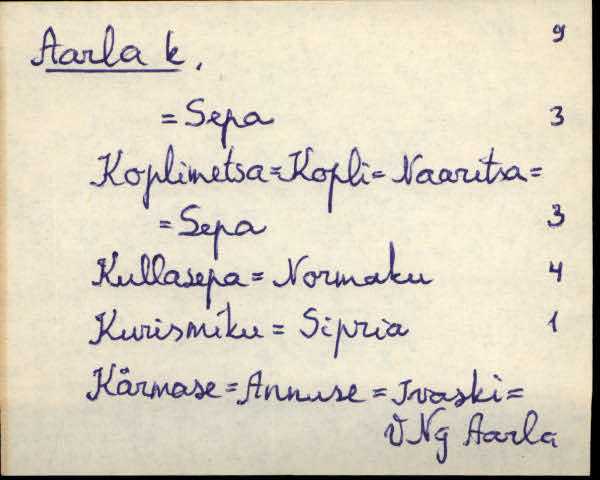 9
Aarla k.
= Sepa 3
Koplimetsa = Kopli = Naaritsa =
= Sepa 3
Kullasepa = Normaku 4
Kurismiku = Sipria 1
Kärmase = Annuse = Ivaski =
VNg Aarla